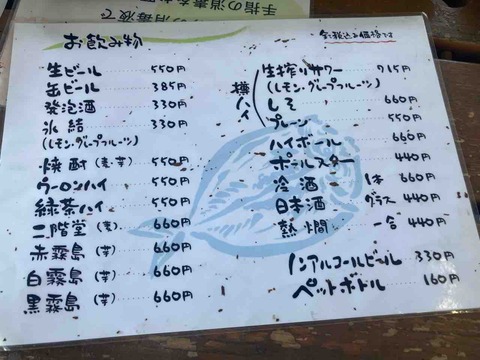 手指の消毒を
の消毒液で
お飲み物
全て税込み価格です
生ビール 550円
缶ビール 385円
発泡酒 330円
氷結 330円
(レモン・グレープフルーツ)
焼酎(麦・芋) 550円
ウーロンハイ 550円
緑茶ハイ 550円
二階堂(麦) 660円
赤霧島(芋) 660円
白霧島(芋) 660円
黒霧島(芋) 660円
樽ハイ
生搾りサワー 715円
(レモン・グレープフルーツ)
しそ 660円
プレーン 550円
ハイボール 660円
ホールスター 440円
冷酒 1本 660円
日本酒 グラス 440円
熱燗 一合 440円
ノンアルコールビール 330円
ペットボトル 160円